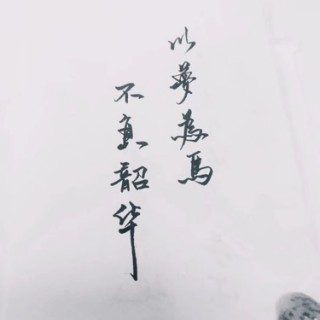 以夢為馬
不負韶华